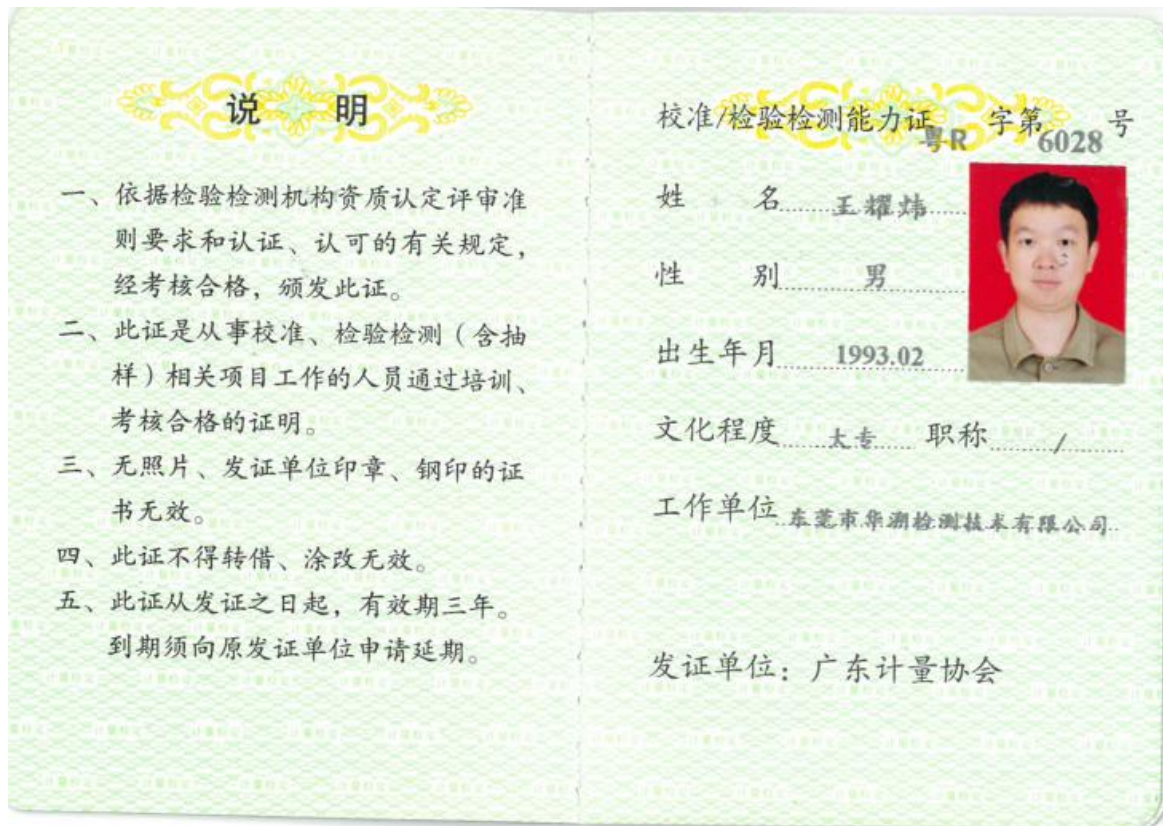 说 明
一、依据检验检测机构资质认定评审准
则要求和认证、认可的有关规定，
经考核合格，颁发此证。
二、此证是从事校准、检验检测（含抽
样）相关项目工作的人员通过培训、
考核合格的证明。
三、无照片、发证单位印章、钢印的证
书无效。
四、此证不得转借、涂改无效。
五、此证从发证之日起，有效期三年。
到期须向原发证单位申请延期。
校准/检验检测能力证粤R 字第6028 号
姓 名 王耀炜
性 别 男
出生年月 1993.02
文化程度 大专 职称 /
工作单位 东莞市华溯检测技术有限公司
发证单位：广东计量协会